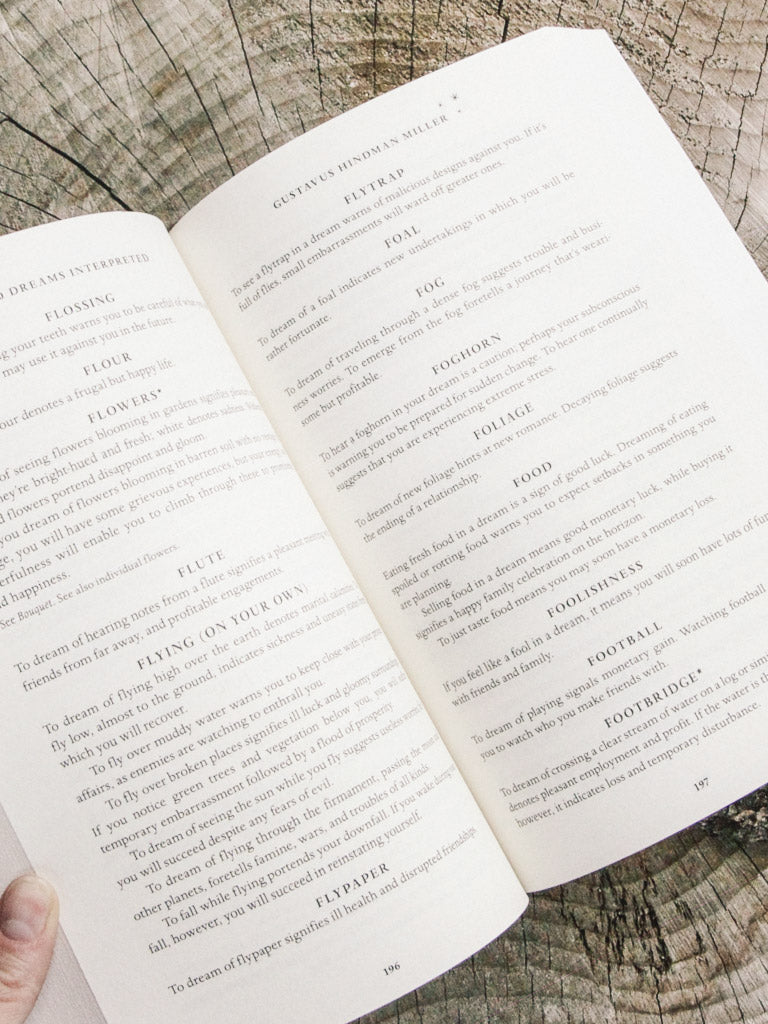 D DREAMS INTERPRETED
FLOSSING
your teeth warns you to be careful of
may use it against you in the future.
FLOUR
our denotes a frugal but happy life
FLOWERS*
of seeing flowers blooming in gardens signifies
they're bright-hued and fresh; white denotes sadness.
d flowers portend disappoint and gloom.
you dream of flowers blooming in barren soil with no
ge, you will have some grievous experiences, but your
erfulness will enable you to climb through these to
d happiness.
See Bouquet. See also individual flowers.
FLUTE
To dream of hearing notes from a flute signifies a pleasant
friends from far away, and profitable engagements.
FLYING (ON YOUR OWN)
To dream of flying high over the earth denotes marital
fly low, almost to the ground, indicates sickness and
which you will recover.
To fly over muddy water warns you to keep close with your
affairs, as enemies are watching to enthrall you.
To fly over broken places signifies ill luck and gloomy
If you notice green trees and vegetation below you, you will
temporary embarrassment followed by a flood of prosperity
To dream of seeing the sun while you fly suggests useless
you will succeed despite any fears of evil.
To dream of flying through the firmament, passing the
other planets, foretells famine, wars, and troubles of all kinds
To fall while flying portends your downfall. If you wake
fall, however, you will succeed in reinstating yourself.
FLYPAPER
To dream of flypaper signifies ill health and disrupted friendships
196
GUSTAVUS HINDMAN MILLER
FLYTRAP
To see a flytrap in a dream warns of malicious designs against you. If it's
full of flies, small embarrassments will ward off greater ones.
FOAL
To dream of a foal indicates new undertakings in which you will be
rather fortunate.
FOG
To dream of traveling through a dense fog suggests trouble and busi-
ness worries. To emerge from the fog foretells a journey that's weari-
some but profitable.
FOGHORN
To hear a foghorn in your dream is a caution; perhaps your subconscious
is warning you to be prepared for sudden change. To hear one continually
suggests that you are experiencing extreme stress.
FOLIAGE
To dream of new foliage hints at new romance. Decaying foliage suggests
the ending of a relationship.
FOOD
Eating fresh food in a dream is a sign of good luck. Dreaming of eating
spoiled or rotting food warns you to expect setbacks in something you
are planning.
Selling food in a dream means good monetary luck, while buying it
signifies a happy family celebration on the horizon.
To just taste food means you may soon have a monetary loss.
FOOLISHNESS
If you feel like a fool in a dream, it means you will soon have lots of fun
with friends and family.
FOOTBALL
To dream of playing signals monetary gain. Watching football
you to watch who you make friends with.
FOOTBRIDGE*
To dream of crossing a clear stream of water on a log or
denotes pleasant employment and profit. If the water is
however, it indicates loss and temporary disturbance.
197